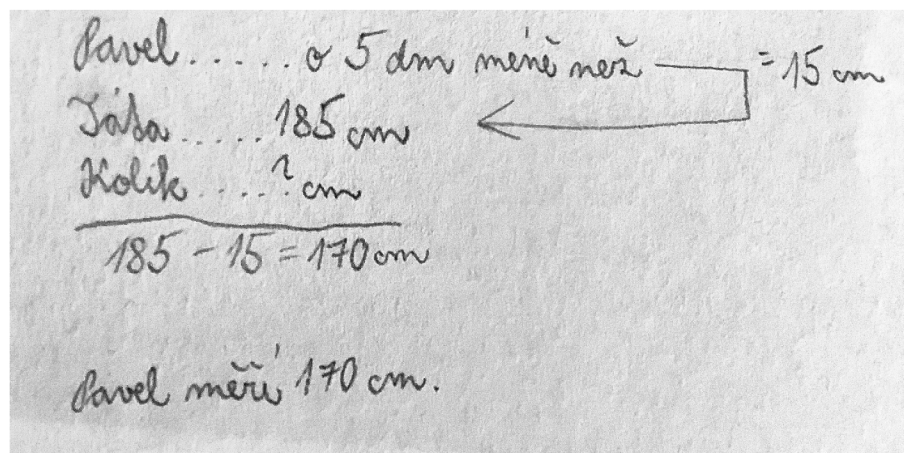 Pavel ..... o 5 dm méně než = 15 cm
Táta ..... 185 cm
Kolik ....? cm
185 - 15 = 170 cm
Pavel měří 170 cm.